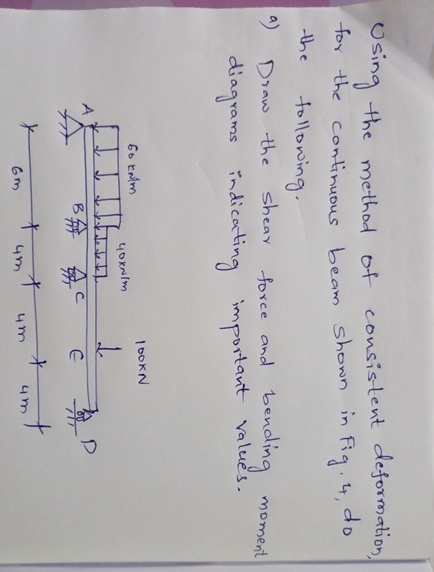 Using the method of consistent deformation,
for the continuous beam shown in Fig. 4, do
the following.
a) Draw the shear force and bending moment
diagrams indicating important values.
60 kN/m
40kN/m
100KN
A
B
C
E
D
6m
4m
4m
4m